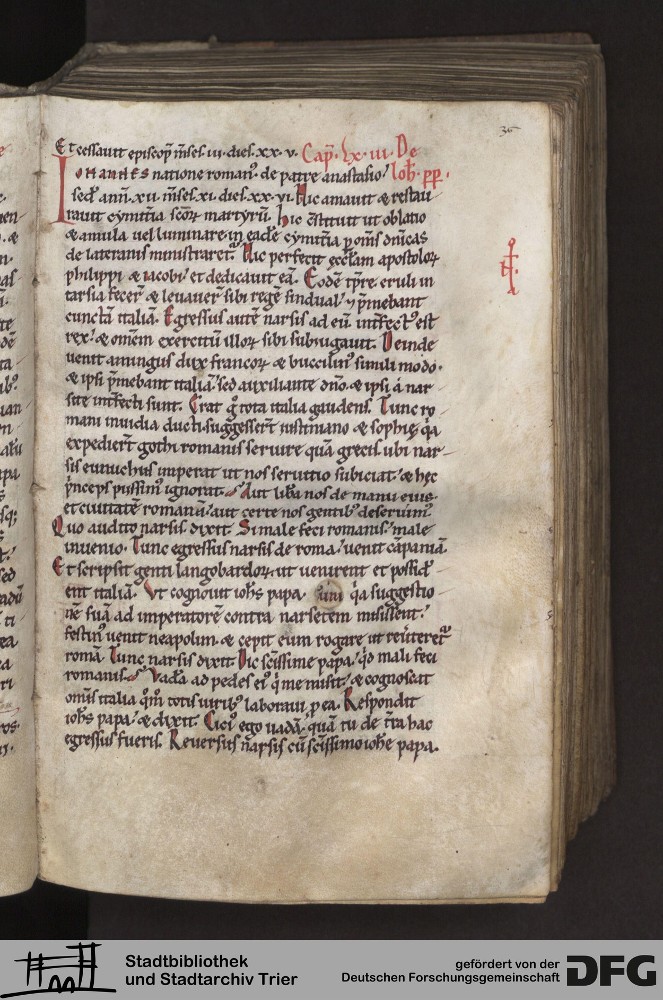 36
Et cessauit episcop̄ m̄ses. iii. dies. xx. v. Cap̄. lx. iii. De
Iohannes natione roman᾽. de patre anastasio. Ioh̄. pp̄.
sed᾽ ann̄. xii. m̄ses. xi. dies. xx. vi. Hic amauit & restau
rauit cymit̄ia sc̄oꝝ martyrū. hic c̄stituit ut oblatio
& amula uel luminare in eadē cymit̄ia p om̄s dn̄icas
de lateranis ministraret᾽. Hic perfecit ecc̄lam apostoloꝝ
philippi & iacobi. et dedicauit eā. Eodē tp̄re eruli in
tarsia fecer̄ & leuauer̄ sibi regē sindual. & p̄mebant
cunctā italiā. Egressus autē narsis ad eū. int̄fect᾽ est
rex. & om̄em exercitū illoꝝ sibi subiugauit. Deinde
uenit amingus dux francoꝝ & buccilin᾽ simili modo.
& ipsi p̄mebant italiā. sed auxiliante dn̄o & ipsi a nar
site int̄fecti sunt. Erat g̊ tota italia gaudens. Tunc ro
mani inuidia ducti suggesser̄t iustiniano & sophię. q̇a
expedier̄t gothi romanis seruire quā grecis. ubi nar
sis eunuchus imperat ut nos seruitio subiciat. & hęc
p̄nceps piissim᾽ ignorat. Aut lib̄a nos de manu eius.
et ciuitatē romanā. aut certe nos gentib᾽ deseruim᾽.
Quo audito narsis. dixit. Si male feci romanis. male
inuenio. Tunc egressus narsis de roma. uenit cāpaniā.
Et scripsit genti langobardoꝝ. ut uenirent et possid
ent italiā. Vt cognouit ioh̄s papa q̇a suggestio
nē suā ad imperatorē contra narsetem misissent.
festin᾽ uenit neapolim. & cepit eum rogare ut reūteret᾽
romā. Tunc narsis dixit. Dic sc̄issime papa. qd̄ mali feci
romanis. Vadā ad pedes ei᾽ q̇ me misit. & cognoscat
omis italia qm̄ totis uirib᾽ laboraui p ea. Respondit
ioh̄s papa. & dixit. Cici᾽ ego uadā. quā tu de t̄ra hac
egressus fueris. Reuersus narsis cū sc̄issimo ioh̄e papa.
Stadtbibliothek
und Stadtarchiv Trier
gefördert von der
Deutschen Forschungsgemeinschaft
DFG